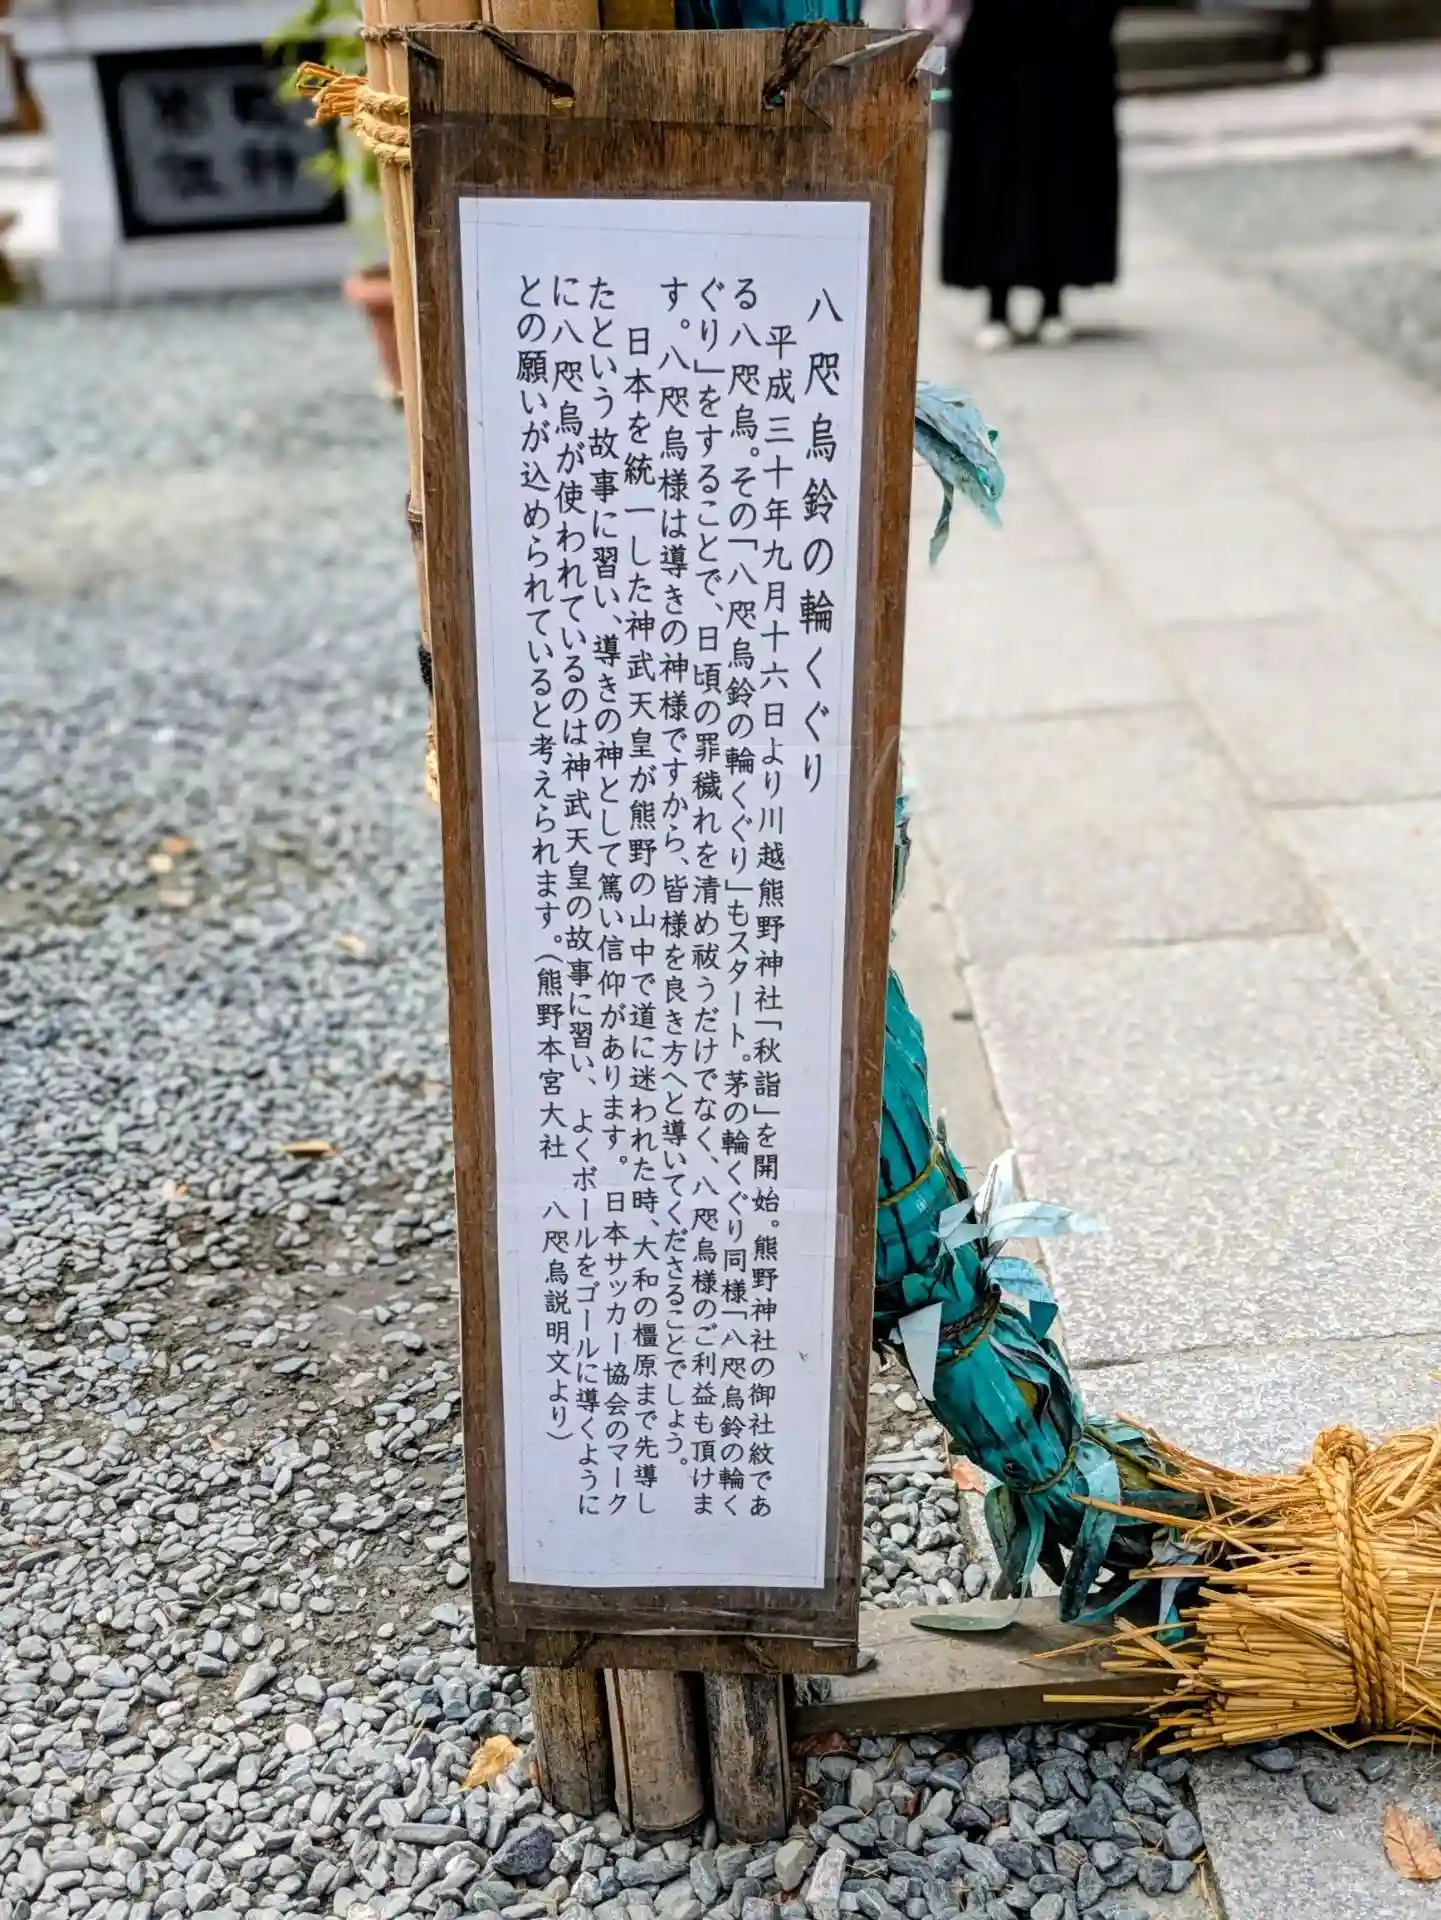 八咫烏鈴の輪くぐり
平成三十年九月十六日より川越熊野神社「秋詣」を開始。熊野神社の御社紋であ
る八咫烏。その「八咫烏鈴の輪くぐり」もスタート。茅の輪くぐり同様「八咫烏鈴の輪く
ぐり」をすることで、日頃の罪穢れを清め祓うだけでなく、八咫烏様のご利益も頂けま
す。八咫烏様は導きの神様ですから、皆様を良き方へと導いてくださることでしょう。
日本を統一した神武天皇が熊野の山中で道に迷われた時、大和の橿原まで先導し
たという故事に習い、導きの神として篤い信仰があります。日本サッカー協会のマーク
に八咫烏が使われているのは神武天皇の故事に習い、よくボールをゴールに導くように
との願いが込められていると考えられます。(熊野本宮大社 八咫烏説明文より)